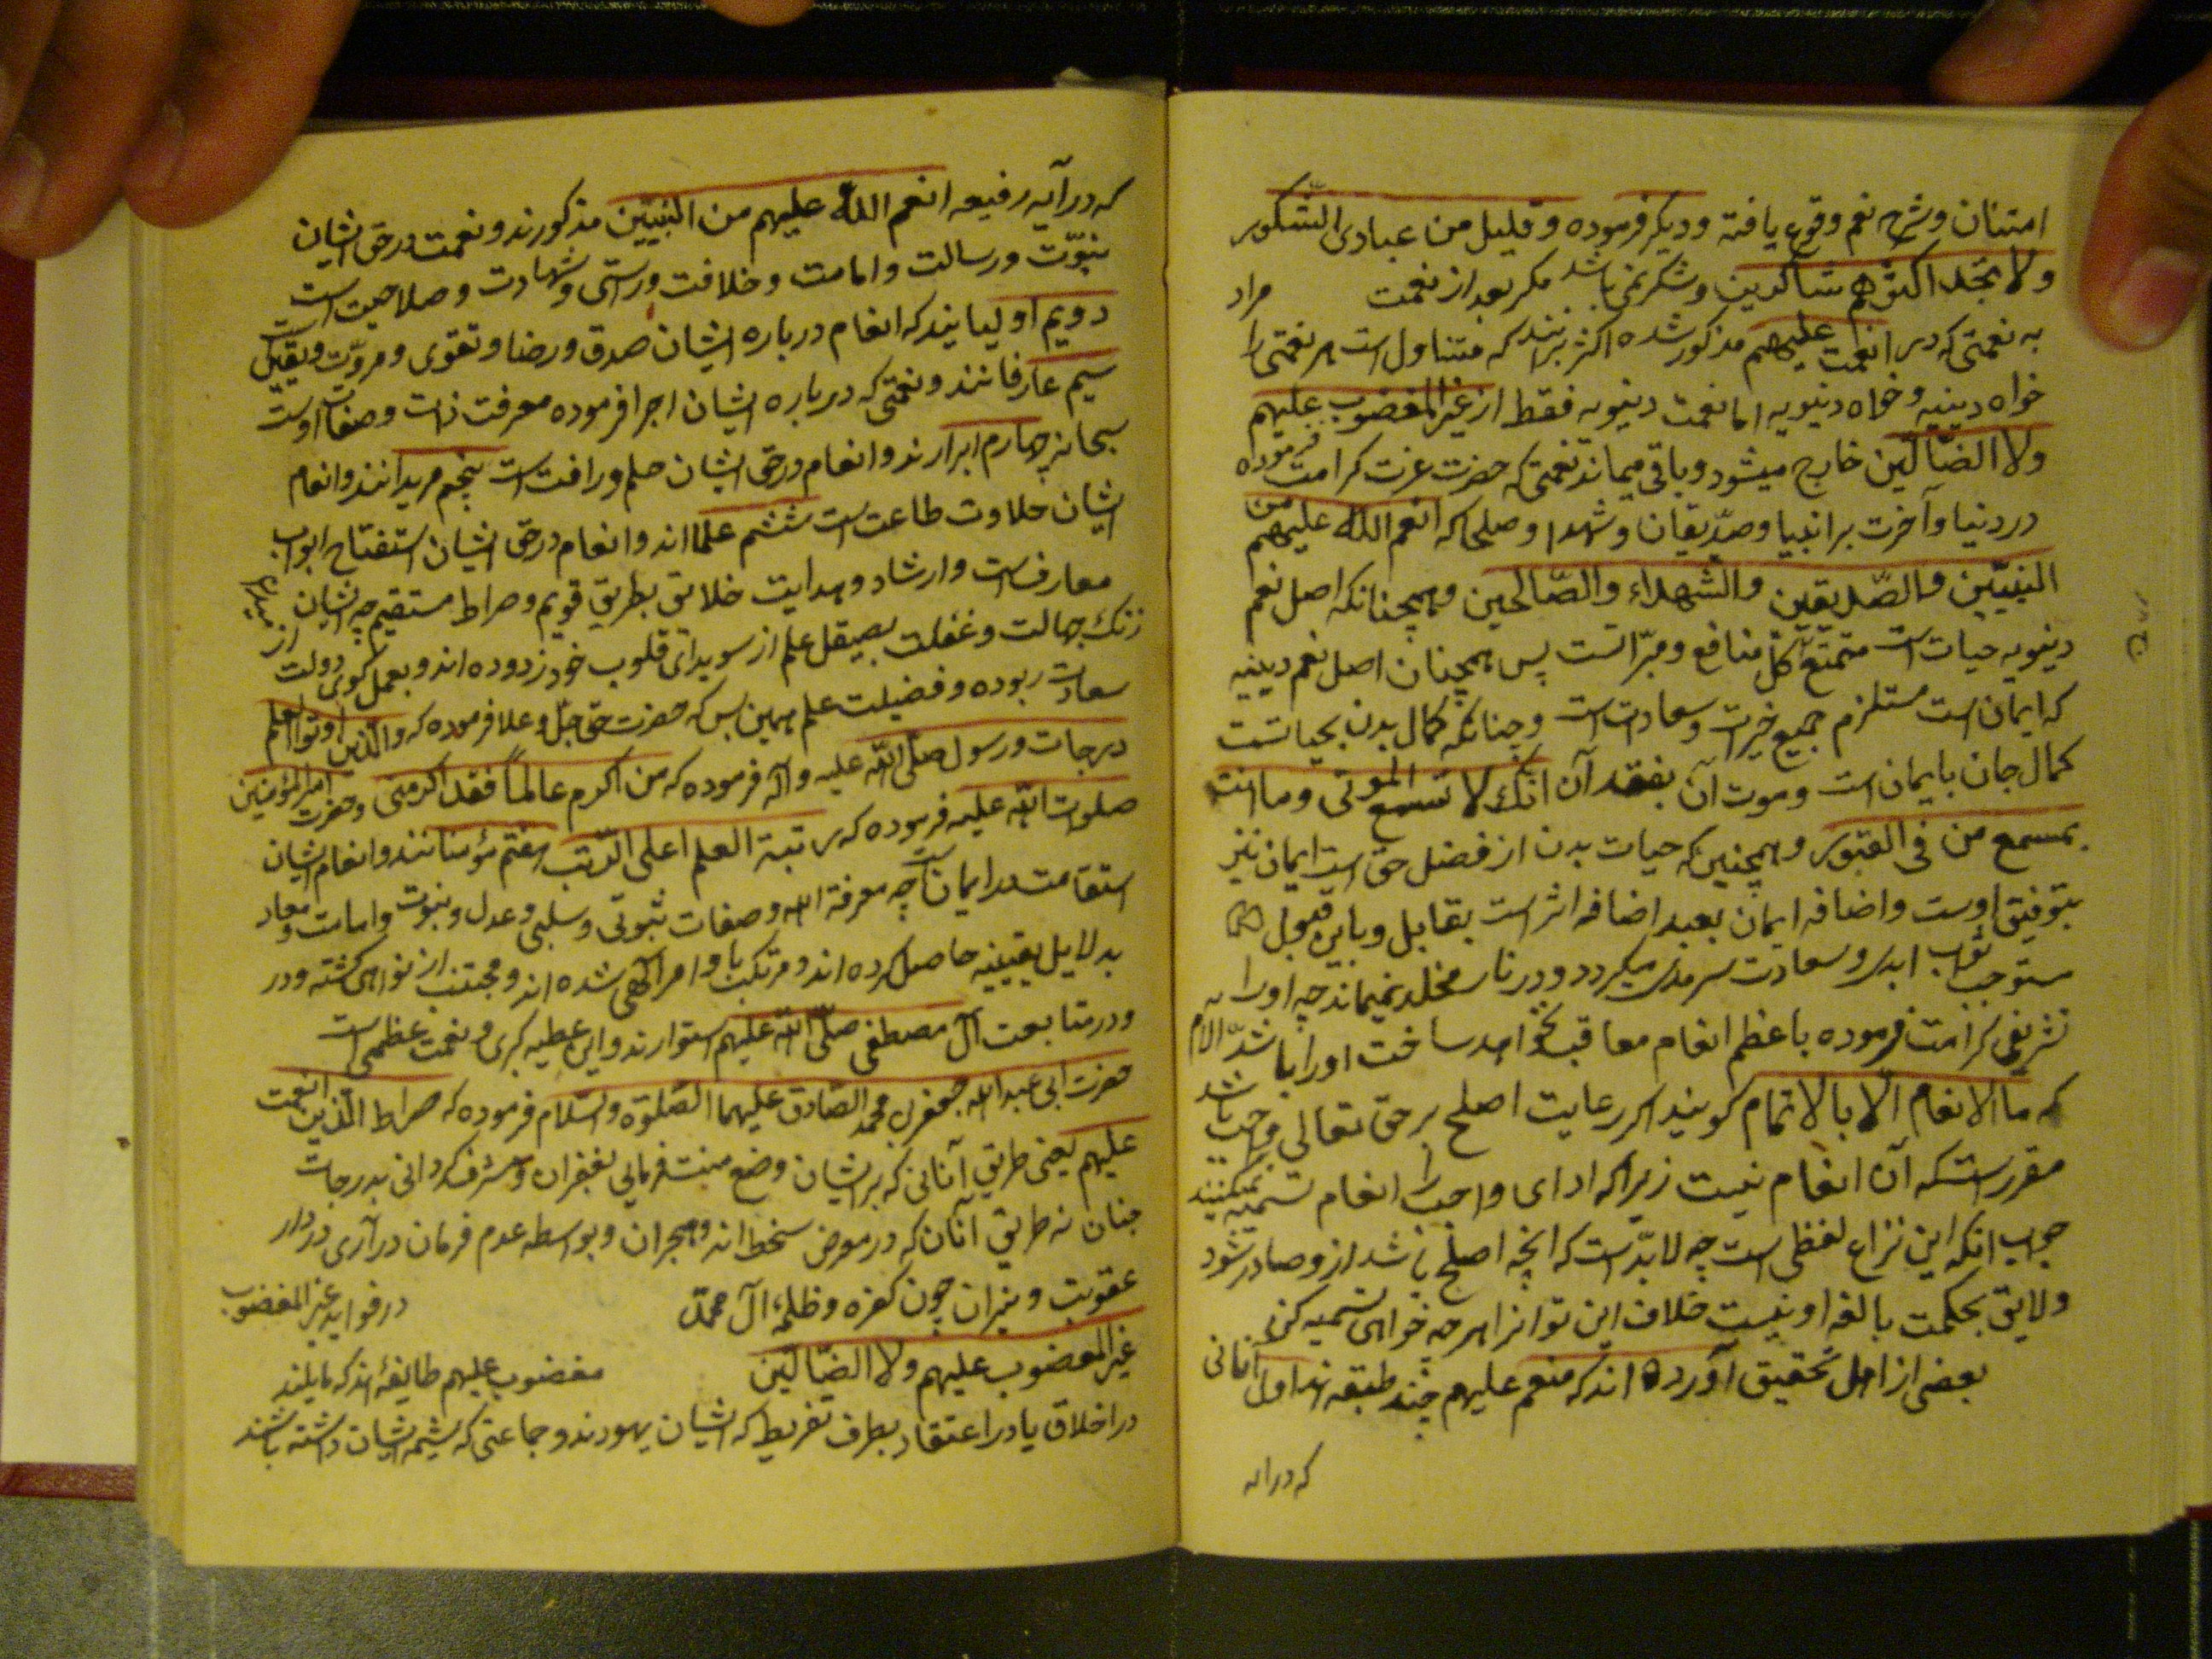 امتنان و شرح نعم وقوع یافته و دیکر فرموده و قلیل من عبادی الشکور
ولا تجد اکثرهم شاکرین و شکر نمی باشد مکر بعد از نعمت مراد
به نعمتی که در انعمت علیهم مذکور شده اکثر برانند که متناول است هر نعمتی را
خواه دینیه و خواه دنیویه اما نعمت دنیویه فقط از غیر المغضوب علیهم
ولا الضّالّین خارج میشود و باقی میماند نعمتی که حضرت عزت کرامت فرموده
در دنیا و آخرت بر انبیا و صدّیقان و شهدا و صلحا که انعم الله علیهم من
النبیّین والصّدیقین والشهداء والصّالحین و همچنانکه اصل نعم
دنیویه حیات است متمتع کل منافع و مبرّاتست پس همچنان اصل نعم دینیه
که ایمان است مستلزم جمیع خیرات و سعادت است و چنانکه کمال بدن بحیاتست
کمال جان بایمان است و موت آن بفقد آن انک لا تسمع الموتی و ما انت
بمسمع من فی القبور و همچنین که حیات بدن از فضل حق است ایمان نیز
بتوفیق اوست و اضافه ایمان بعبد اضافه اثر است بقابل و باین قبول
مستوجب ثواب ابدی و سعادت سرمدی میکردد و در نار مخلد نمیماند چه او را
تشریفی کرامت فرموده باعظم انعام معاقب نخواهد ساخت او را باشدّ الالام
که ما الانعام الّا بالاتمام کویند اکر رعایت اصلح بر حق تعالی واجب باشد
مقرر است که آن انعام نیست زیرا که ادای واجب را انعام تسمیه نمیکنند
جواب انکه این نزاع لفظی است چه لابدّ است که انچه اصلح باشد ازو صادر شود
و لایق بحکمت بالغه او نیست خلاف این تو انرا هر چه خواهی تسمیه کن
بعضی از اهل تحقیق آورده اند که منعم علیهم چند طبقه اند اول آنانی
که درایه
که در آیه رفیعه انعم الله علیهم من النبیّین مذکورند و نعمت در حق ایشان
نبوّت و رسالت و امامت و خلافت و راستی و شهادت و صلاحیت است
دویم اولیایند که انعام درباره ایشان صدق و رضا و تقوی و مروّت و یقین است
سیم عارفانند و نعمتی که درباره ایشان اجرا فرموده معرفت ذات و صفات اوست
سبحانه چهارم ابرارند و انعام در حق ایشان حلم و رافت است پنجم مریدانند و انعام
ایشان حلاوت طاعت است ششم علما اند و انعام در حق ایشان استفتاح ابواب
معارف است و ارشاد و هدایت خلایق بطریق قویم و صراط مستقیم چه ایشان
زنک جهالت و غفلت بصیقل علم از سویدای قلوب خود زدوده اند و بعمل کوی دولت از
سعادت ربوده و فضیلت علم همین بس که حضرت حق جلّ و علا فرموده که والّذین اوتوا العلم
درجات و رسول صلّی الله علیه و آله فرموده که من اکرم عالماً فقد اکرمنی و حضرت امیر المؤمنین
صلوات الله علیه فرموده که رتبة العلم اعلی الرّتب هفتم مؤمنانند و انعام ایشان
استقامت در ایمان است چه معرفة الله و صفات ثبوتی و سلبی و عدل و نبوت و امامت و معاد
بدلایل یقینیه حاصل کرده اند و مرتکب باوامر آلهی شده اند و مجتنب از نواهی کشته و در
و در متابعت آل مصطفی صلّی الله علیهم استوارند و این عطیه کبری و نعمت عظمی است
حضرت ابی عبد الله جعفر بن محمد الصّادق علیهما الصّلوة و السّلام فرموده که صراط الّذین انعمت
علیهم یعنی طریق آنانی که بر ایشان وضع منت فرمایی بغفران و مشرف کردانی بدرجات
جنان نه طریق آنان که در معرض سخط اند و هجران و بواسطه عدم فرمان درآری در دار
عقوبت و نیران چون کفره و ظلمهٔ آل محمد در فواید غیر المغضوب
غیر المغضوب علیهم ولا الضّالّین مغضوب علیهم طایفهٔ اند که مایلند
در اخلاق یا در اعتقاد بطرف تفریط که ایشان یهودند و جماعتی که شیمه ایشان داشته باشند